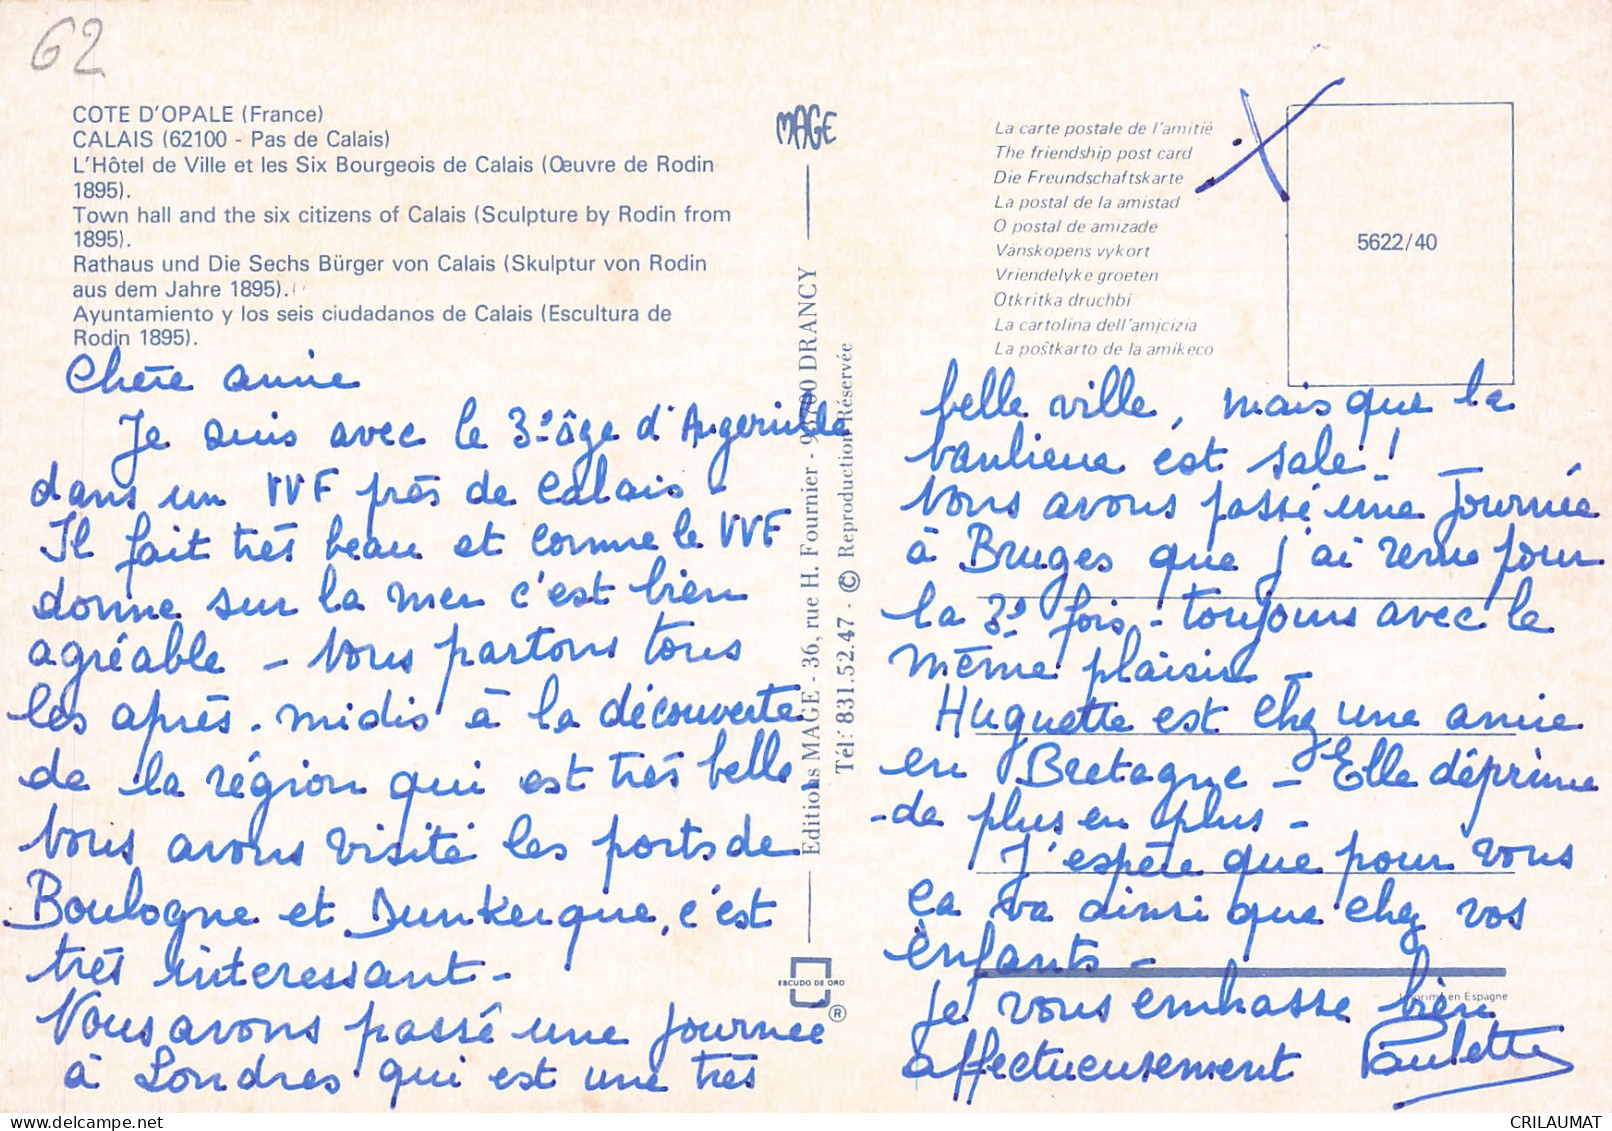 62
COTE D'OPALE (France)
CALAIS (62100 - Pas de Calais)
L'Hôtel de Ville et les Six Bourgeois de Calais (Œuvre de Rodin
1895).
Town hall and the six citizens of Calais (Sculpture by Rodin from
1895).
Rathaus und Die Sechs Bürger von Calais (Skulptur von Rodin
aus dem Jahre 1895).
Ayuntamiento y los seis ciudadanos de Calais (Escultura de
Rodin 1895).
Chère annie
Je suis avec le 3e âge d'Angerville
dans un VVF près de Calais -
Il fait très beau et comme le VVF
donne sur la mer c'est bien
agréable - Nous partons tous
les après-midis à la découverte
de la région qui est très belle.
Nous avons visité les ports de
Boulogne et Dunkerque, c'est
très interessant -
Nous avons passé une journée
à Londres qui est une très
MAGE
Editions MAGE - 36, rue H. Fournier - 93700 DRANCY
Tél: 831.52.47 - © Reproduction Réservée
ESCUDO DE ORO
®
La carte postale de l'amitié
The friendship post card
Die Freundschaftskarte
La postal de la amistad
O postal de amizade
Vänskopens vykort
Vriendelyke groeten
Otkritka druchbi
La cartolina dell'amicizia
La poŝtkarto de la amikeco
5622/40
belle ville, mais que la
banlieue est sale! -
Nous avons passé une journée
à Bruges que j'ai revue pour
la 3e fois - toujours avec le
même plaisir -
Huguette est chez une amie
en Bretagne - Elle déprime
- de plus en plus -
J'espère que pour vous
ça va ainsi que chez vos
enfants -
Imprimé en Espagne
Je vous embrasse bien
affectueusement Paulette
CRILAUMAT